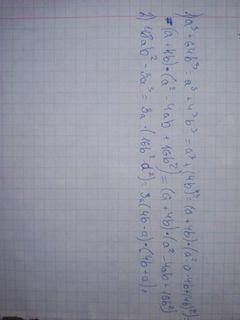 1) a³ + 64b³ = a³ + 4³b³ = a³ + (4b)³ = (a + 4b) · (a² - a · 4b + (4b)²) =
= (a + 4b) · (a² - 4ab + 16b²) = (a + 4b) · (a² - 4ab + 16b²)
2) 48ab² - 3a³ = 3a · (16b² - a²) = 3a (4b - a) · (4b + a),